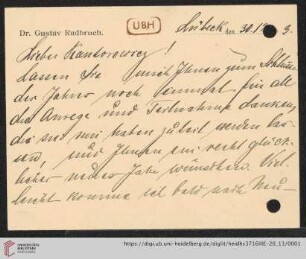 Dr. Gustav Radbruch.
UBH
Lübeck, den 30.12. 3.
Lieber Kantorowicz!
Lassen Sie mich Ihnen zum Schluss
des Jahres noch einmal für all
die Anrege und Teilnahme danken,
die Sie mir haben zuteil werden las-
sen! und Ihnen ein recht glück-
liches neues Jahr wünschen. Viel-
leicht komme ich bald nach Neu-
UNIVERSITÄTS-
BIBLIOTHEK
HEIDELBERG
https://digi.ub.uni-heidelberg.de/diglit/heidhs3716IIIE-20_13/0001